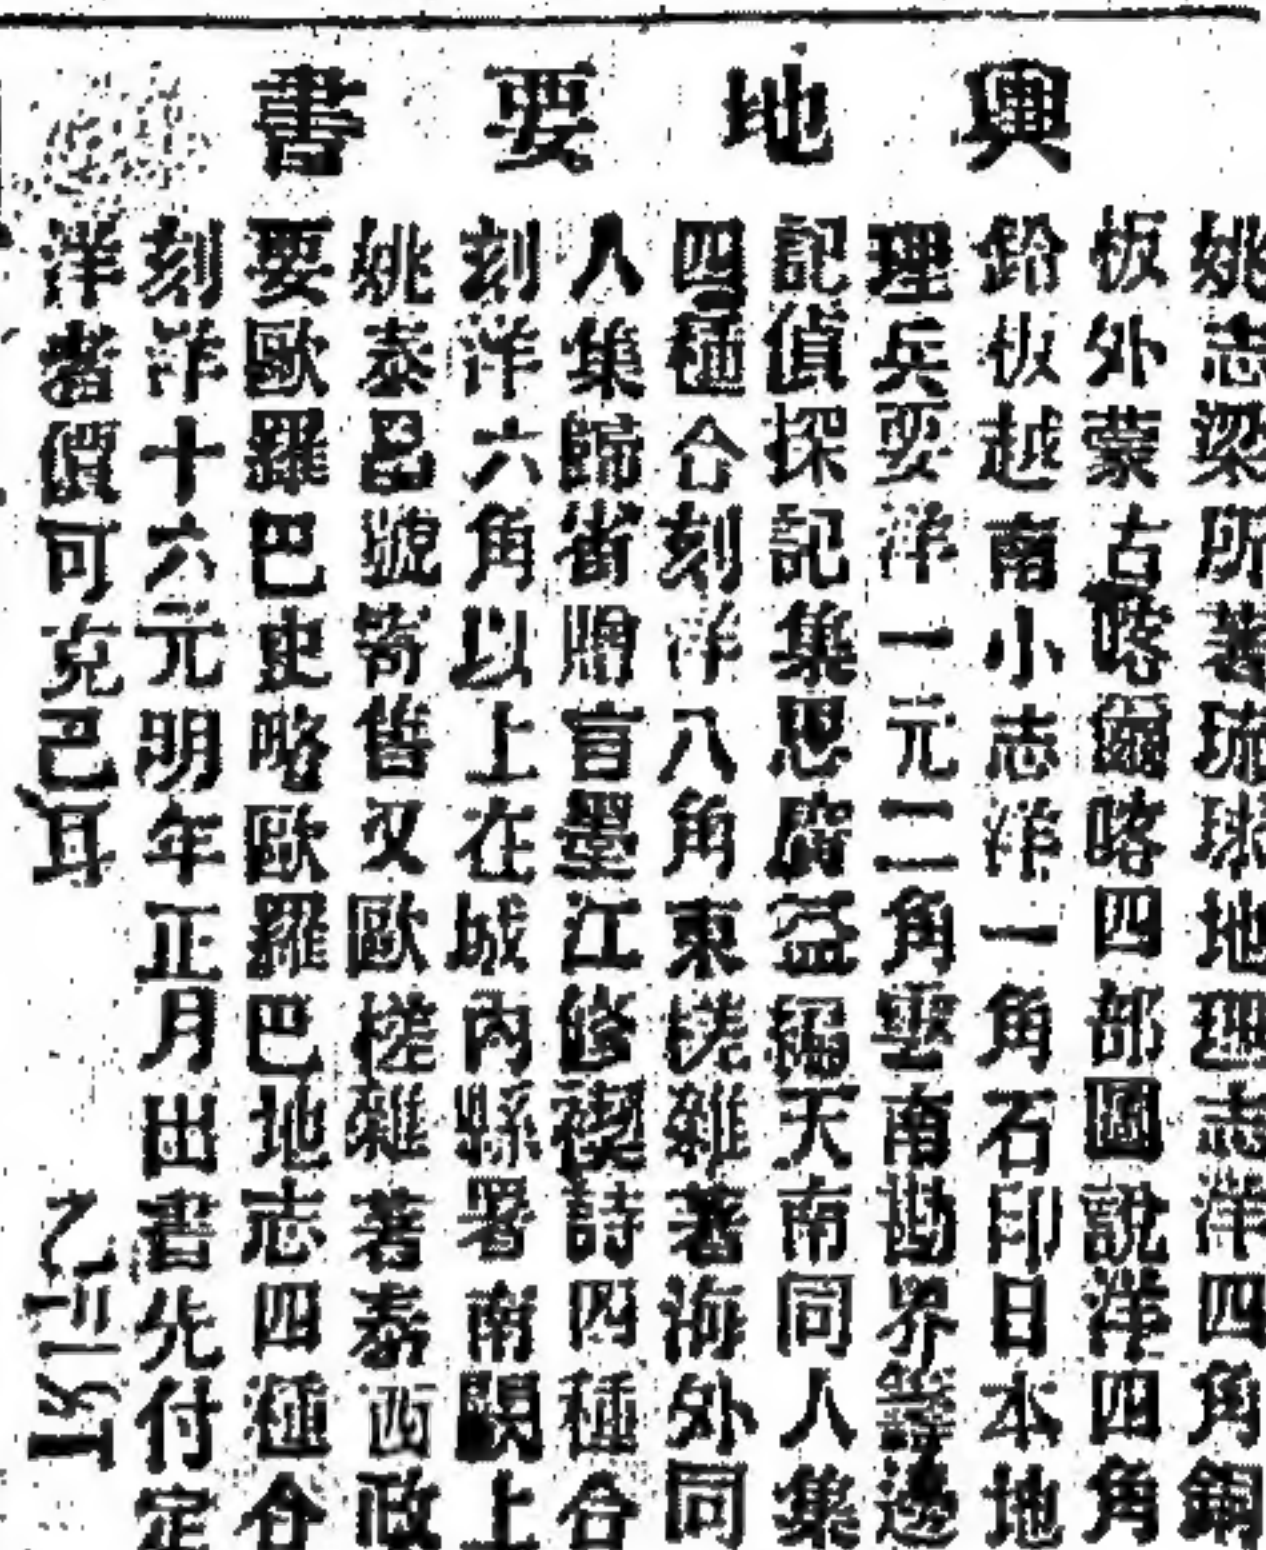 輿地要書
姚志梁所著琉球地理志洋四角銅
板外蒙古喀爾喀四部圖說洋四角
鉛板越南小志洋一角石印日本地
理兵要洋一元二角雲南勘界籌邊
記偵探記集思廣益編天南同人集
四種合刻洋八角東槎雜著海外同
人集歸省贈言墨江修禊詩四種合
刻洋六角以上在城內縣署南闕上
姚泰邑號寄售又歐槎雜著泰西政
要歐羅巴史略歐羅巴地志四種合
刻洋十六元明年正月出書先付定
洋者價可克己耳